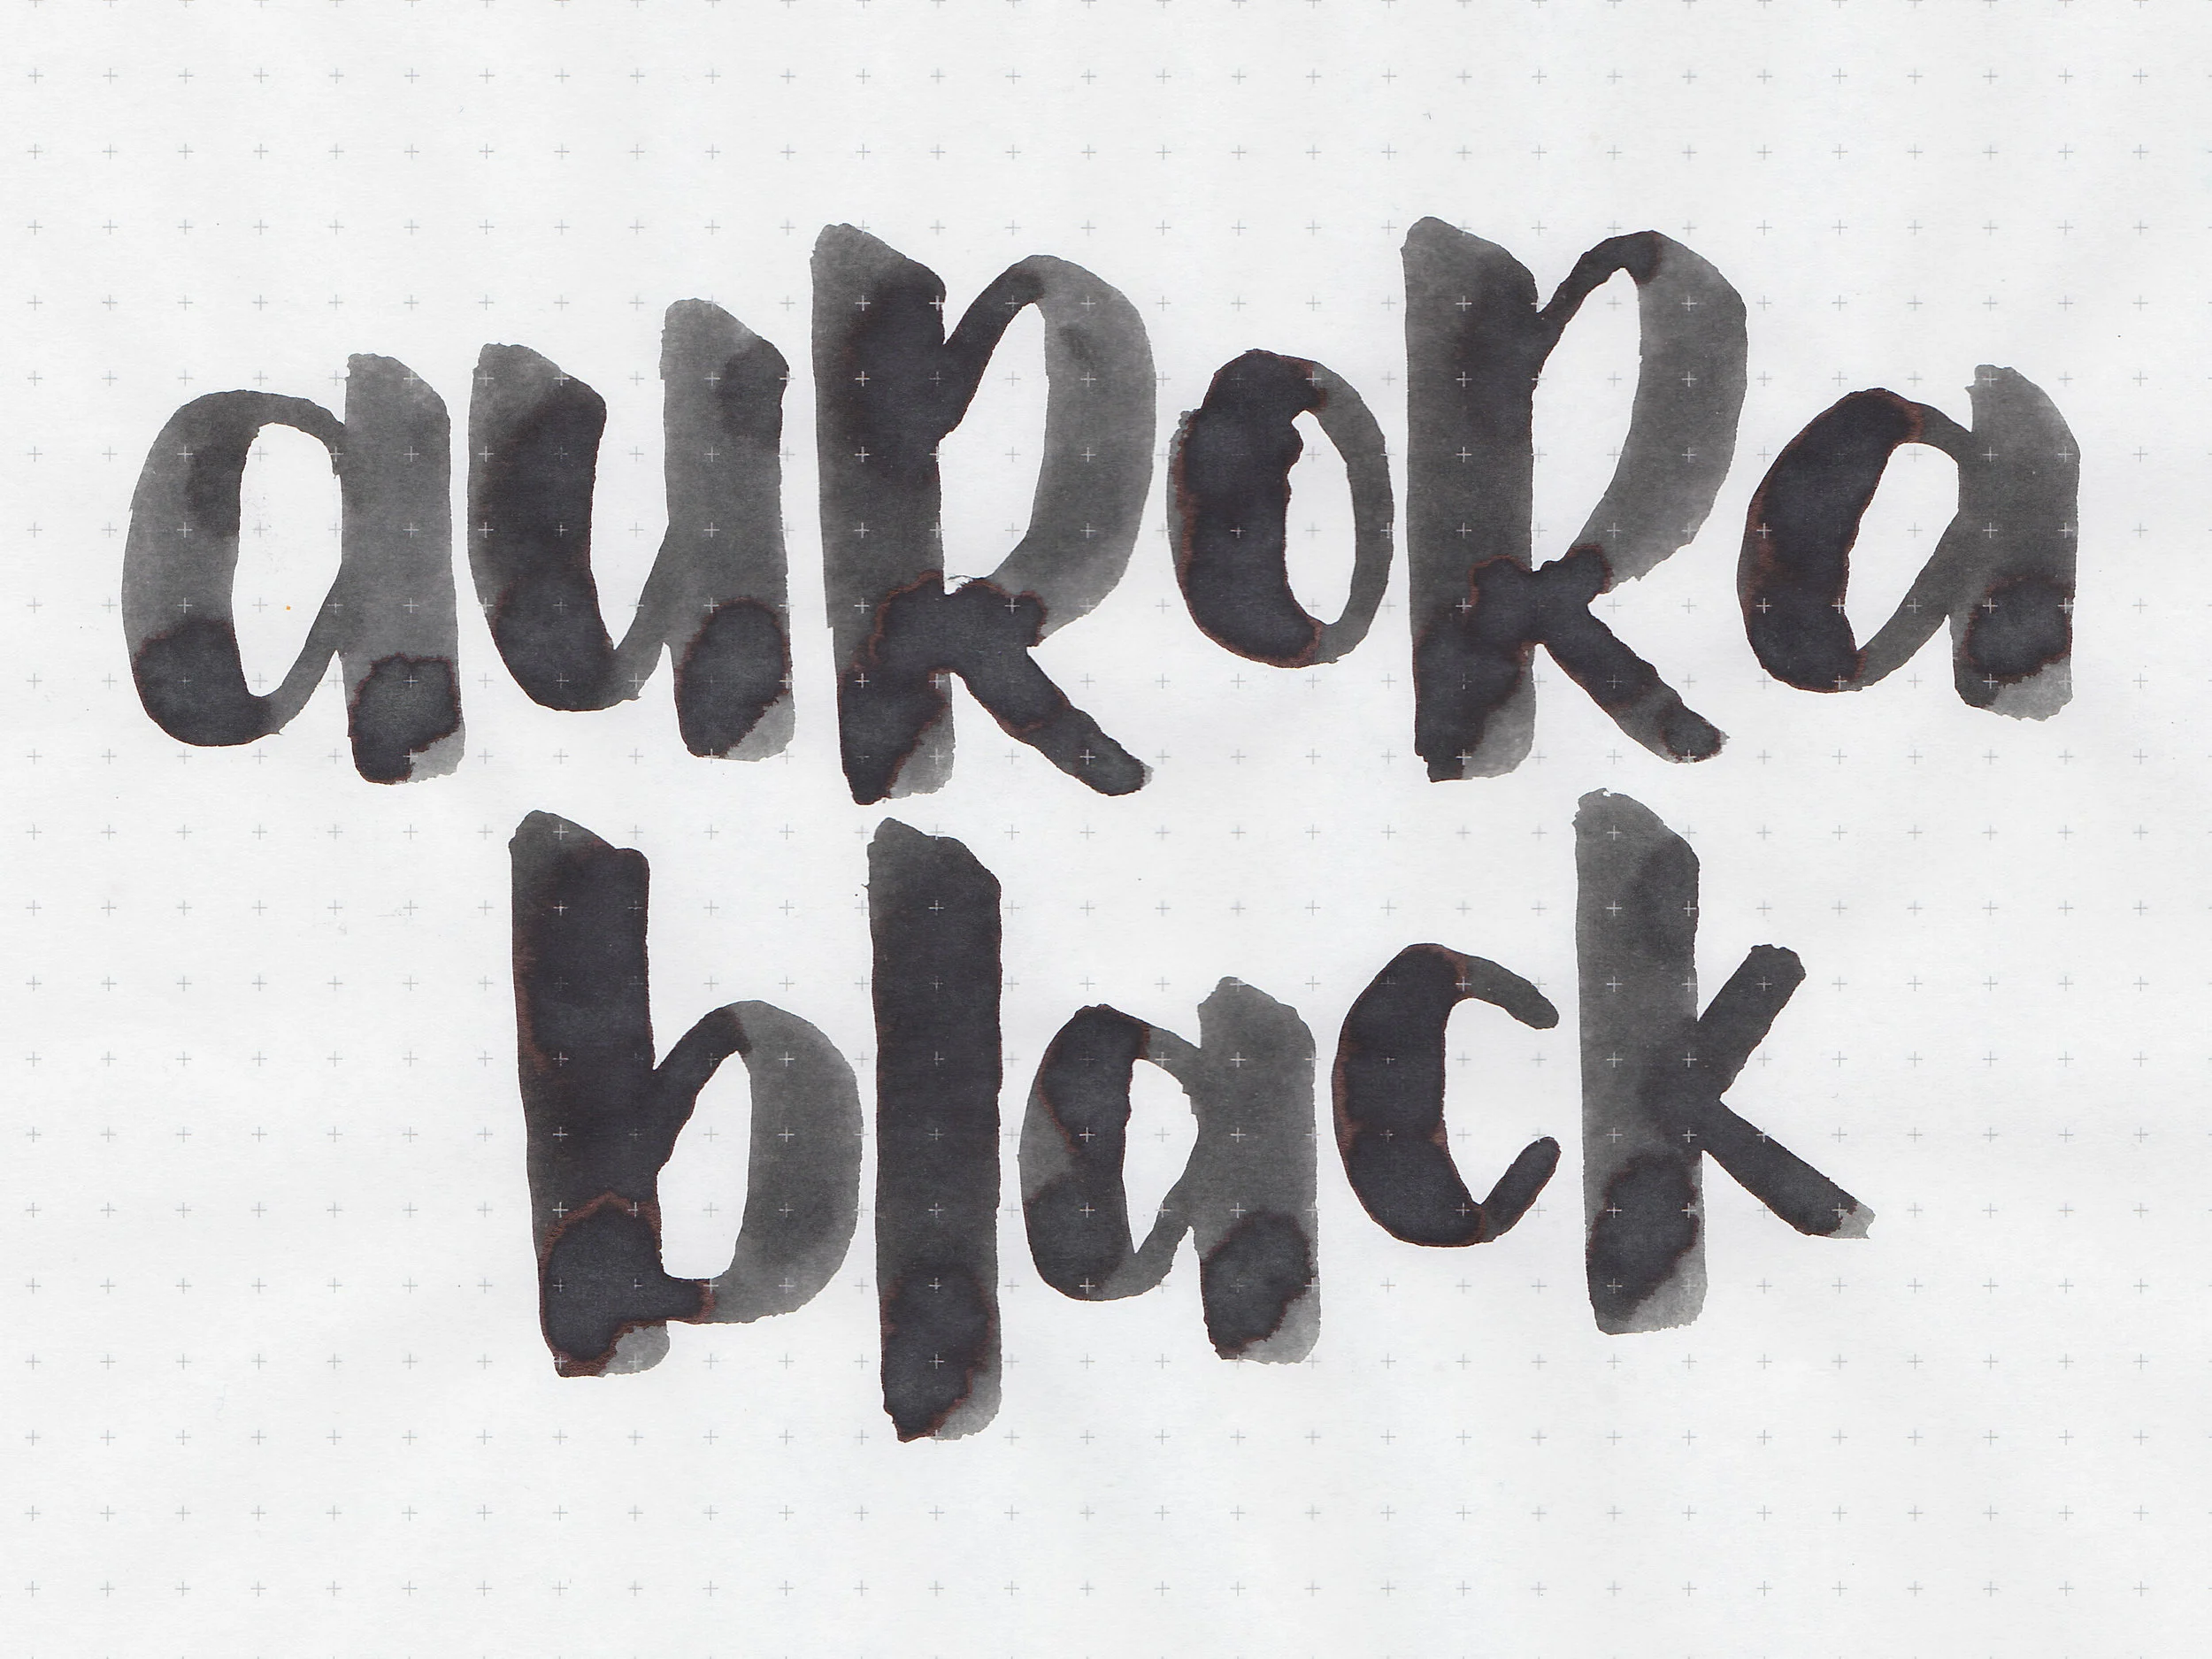 auRoRa
black